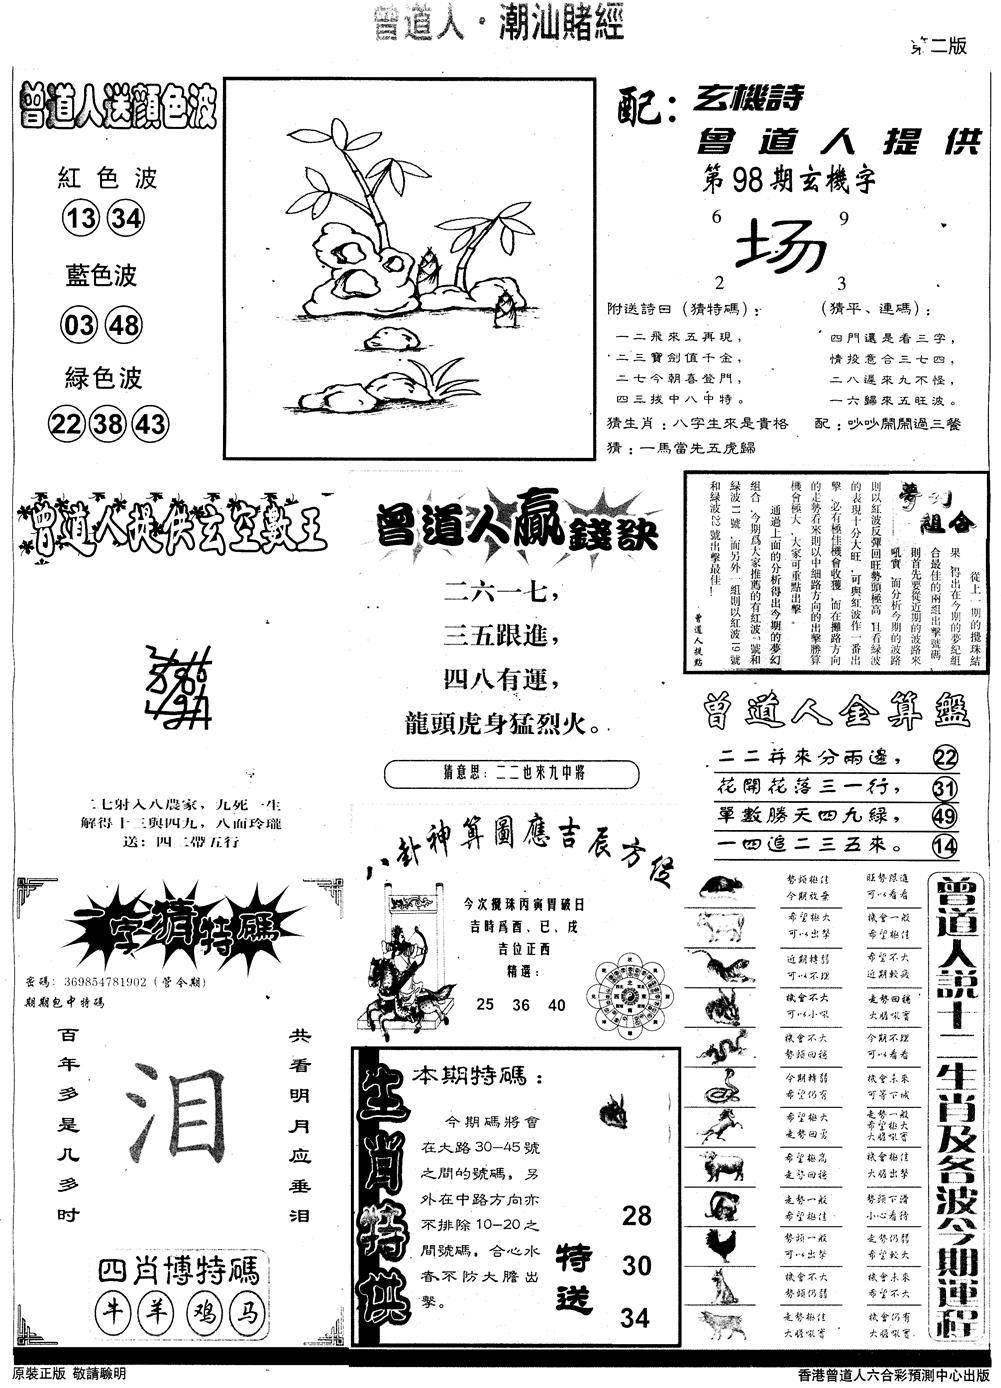 曾道人·潮汕賭經
第二版
曾道人送顏色波
紅色波
13 34
藍色波
03 48
緑色波
22 38 43
配：
玄機詩
曾道人提供
第98期玄機字
6 9
场
2 3
附送詩曰（猜特碼）：
一二飛來五再現，
二三寶劍值千金，
二七今朝喜登門，
四三拔中八中特。
（猜平、連碼）：
四門還是看三字，
情投意合三七四，
二八遲來九不怪，
一六歸來五旺波。
猜生肖：八字生來是貴格
配：吵吵鬧鬧過三餐
猜：一馬當先五虎歸
曾道人提供玄空數王
二七射入八農家，九死一生
解得十三與四九，八面玲瓏
送：四二帶五行
曾道人贏錢訣
二六一七，
三五跟進，
四八有運，
龍頭虎身猛烈火。
猜意思：二二也來九中將
組合
從上一期的攪珠結
果，得出在今期的夢紀組
合最佳的兩組出擊號碼，
則首先要從近期的波路來
吼實，而分析今期的波路
則以紅波反彈回旺勢頭極高，且看綠波
的表現十分大旺，可與紅波作一番出
擊，必有極佳機會收獲，而在攤路方向
的走勢看來則以中細路方向的出擊勝算
機會極大，大家可重點出擊。
通過上面的分析得出今期的夢幻
組合，今期爲大家推薦的有紅波7號和
綠波11號，而另外一組則以紅波19號
和綠波22號出擊最佳！
曾道人提點
曾道人金算盤
二二并來分兩邊， 22
花開花落三一行， 31
單數勝天四九绿， 49
一四追二三五來。 14
八卦神算圖應吉辰方位
今次攪珠丙寅胃破日
吉時爲酉、巳、戌
吉位正西
精選：
25 36 40
一字猜特碼
密碼：369854781902（管今期）
期期包中特碼
百年多是几多时
泪
共看明月应垂泪
四肖博特碼
牛 羊 鸡 马
生肖特供
本期特碼：
今期碼將會
在大路30–45號
之間的號碼，另
外在中路方向亦
不排除10–20之
間號碼，合心水
者不防大膽出
擊。
特送
28
30
34
曾道人説十二生肖及各波今期運程
勢頭極佳 旺勢跟進
今期放棄 可以看看
希望極大 機會一般
可以出擊 希望極佳
近期轉弱 希望不大
可以不理 近期較疲
機會不大 走勢回穩
可以小吼 大膽吼實
機會不大 今期不理
勢頭回穩 可以看看
今期轉弱 機會未來
希望仍有 可等下城
希望極大 走勢一般
走勢回勇 希望極大
大膽吼實
希望極高 機會極佳
走勢回穩 大膽出擊
走勢一般 勢頭下滑
希望極佳 小心看待
勢頭一般 走勢仍弱
可以出擊 希望較大
機會不大 機會未來
勢頭仍弱 希望不大
走勢極佳 機會仍有
大膽吼實 大膽出擊
原裝正版 敬請驗明
香港曾道人六合彩預測中心出版